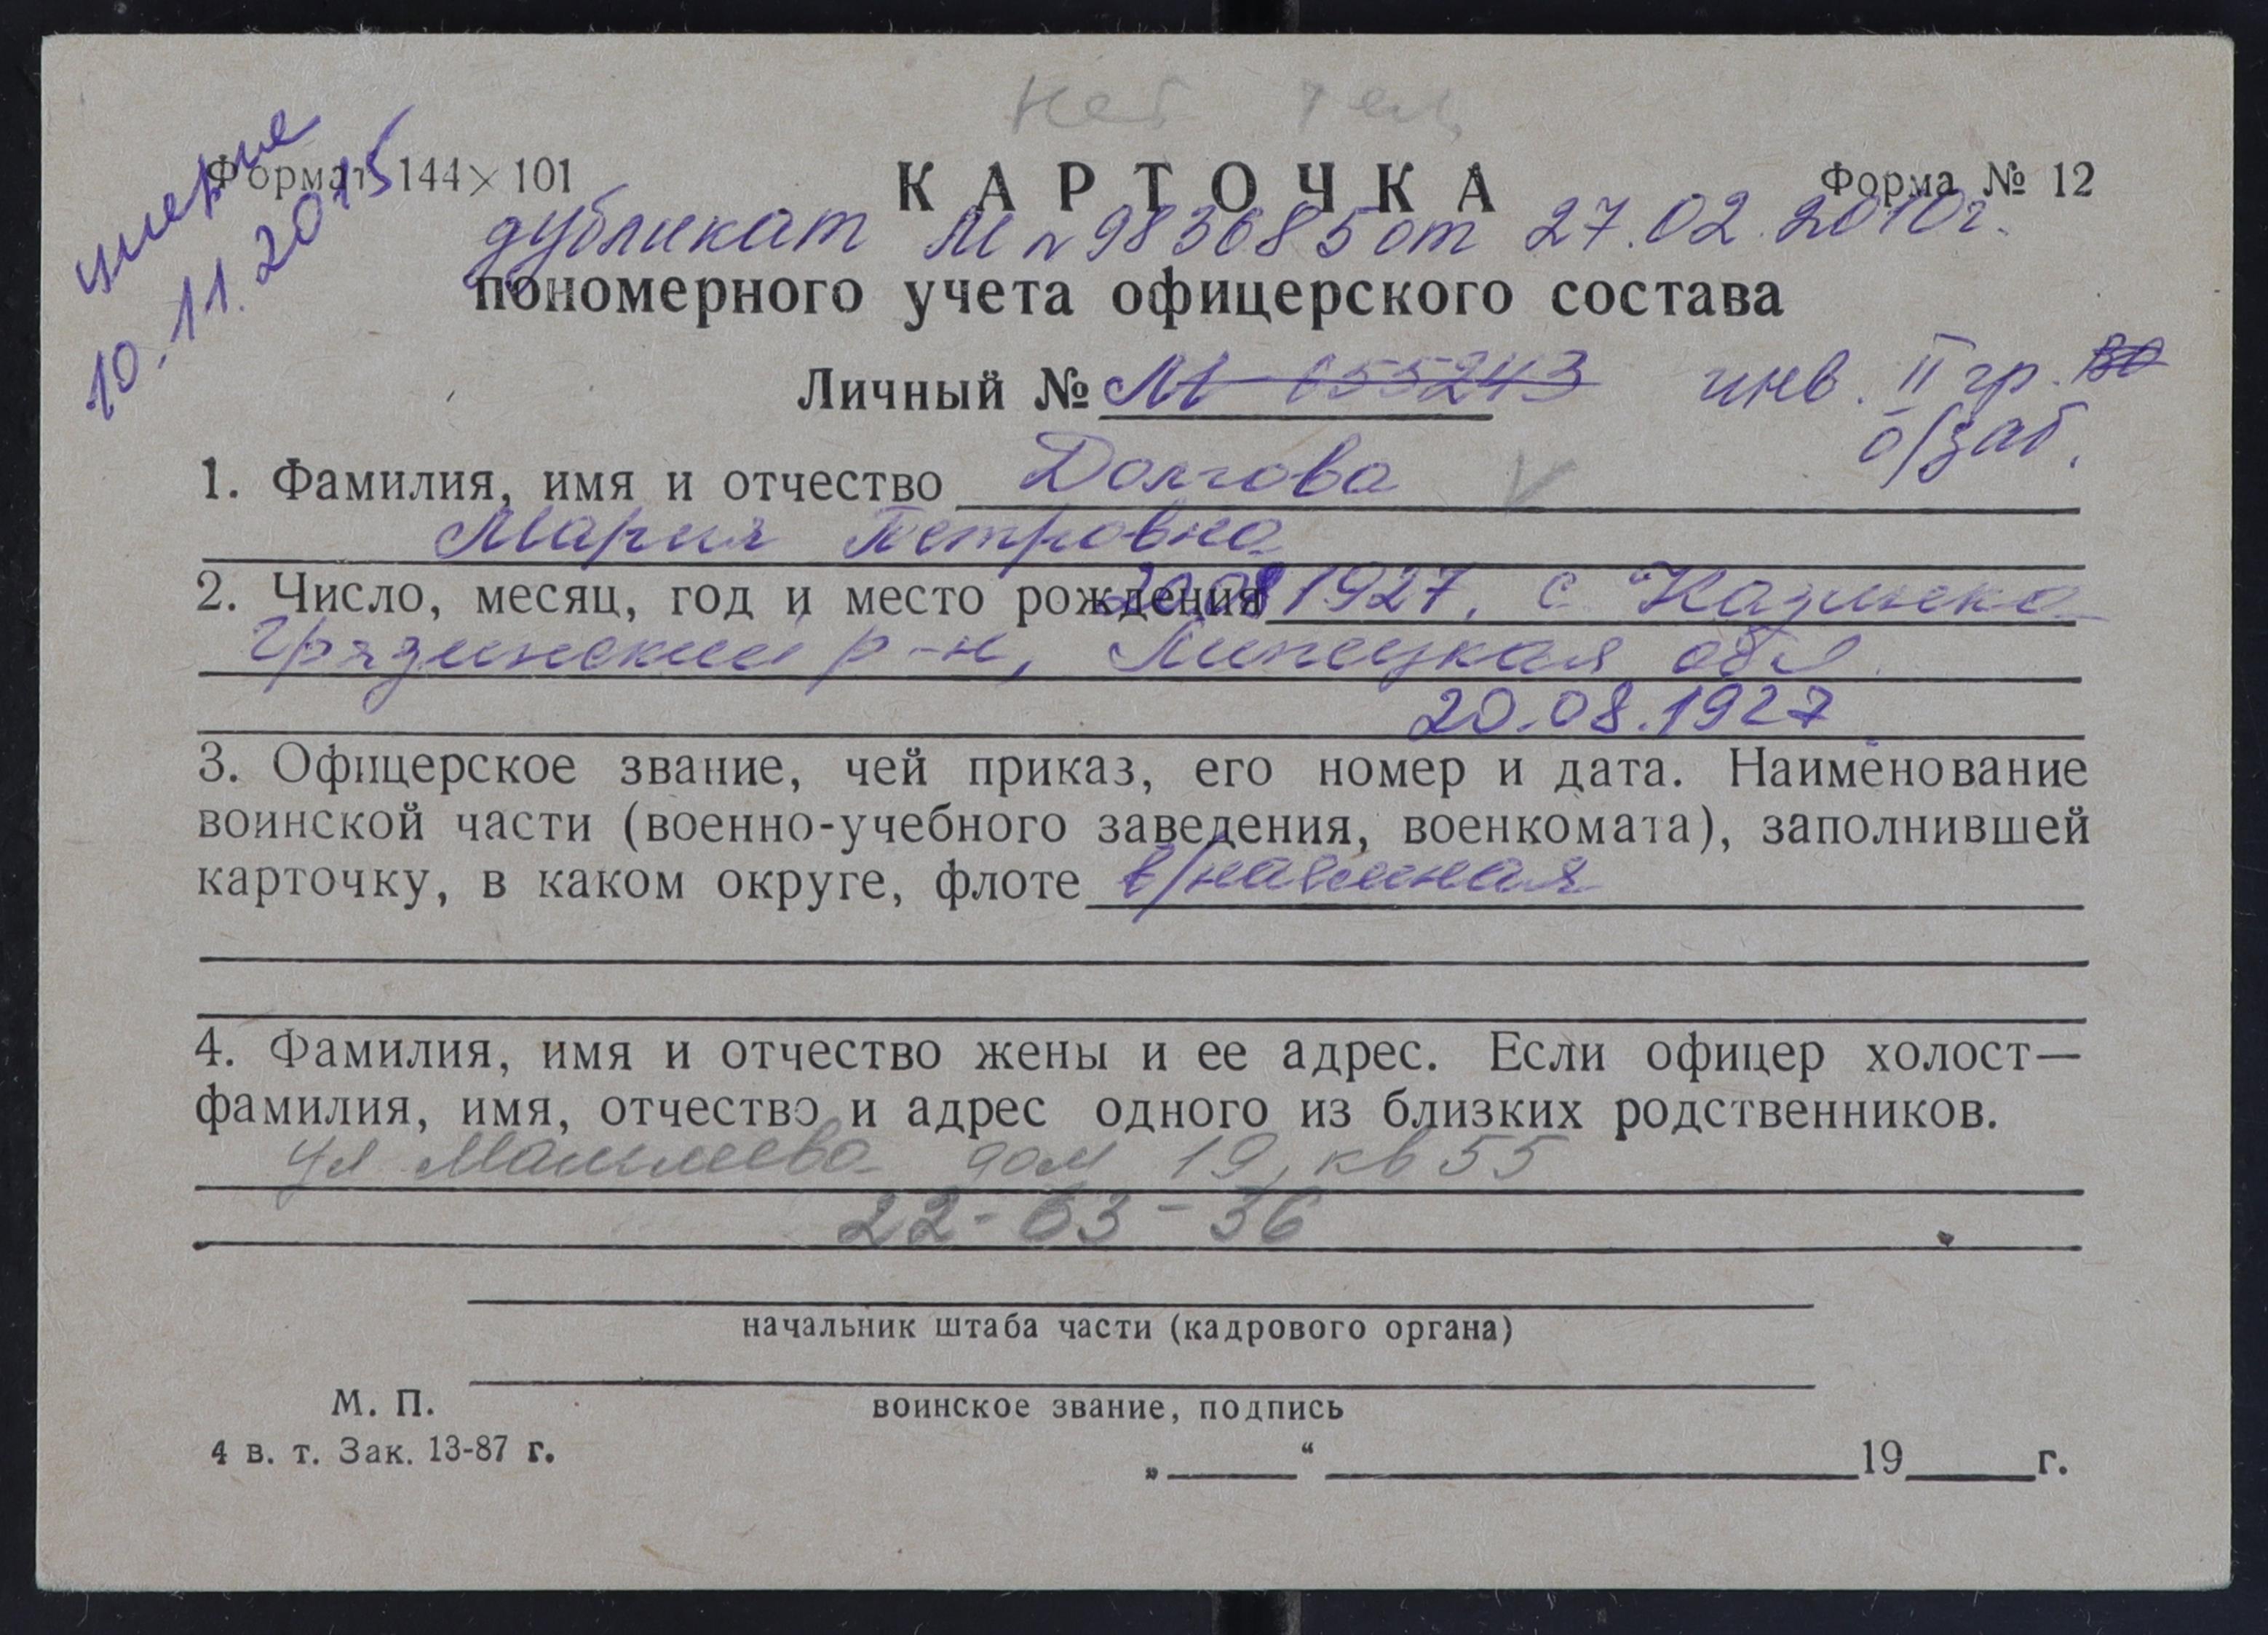 нет тел
умерла
10.11.2015
Формат 144×101
КАРТОЧКА
Форма № 12
дубликат М № 983685 от 27.02.2010г.
пономерного учета офицерского состава
Личный № М 055243
инв. II гр. ВО
о/заб.
1. Фамилия, имя и отчество Долгова
Мария Петровна
2. Число, месяц, год и место рождения 20.08 1927, с Казинка
Грязинский р-н, Липецкая обл.
20.08.1927
3. Офицерское звание, чей приказ, его номер и дата. Наименование
воинской части (военно-учебного заведения, военкомата), заполнившей
карточку, в каком округе, флоте в/наемная
4. Фамилия, имя и отчество жены и ее адрес. Если офицер холост—
фамилия, имя, отчество и адрес одного из близких родственников.
ул дом 19, кв 55
22-63-36
начальник штаба части (кадрового органа)
М. П.
воинское звание, подпись
4 в. т. Зак. 13-87 г.
„ “ 19 г.